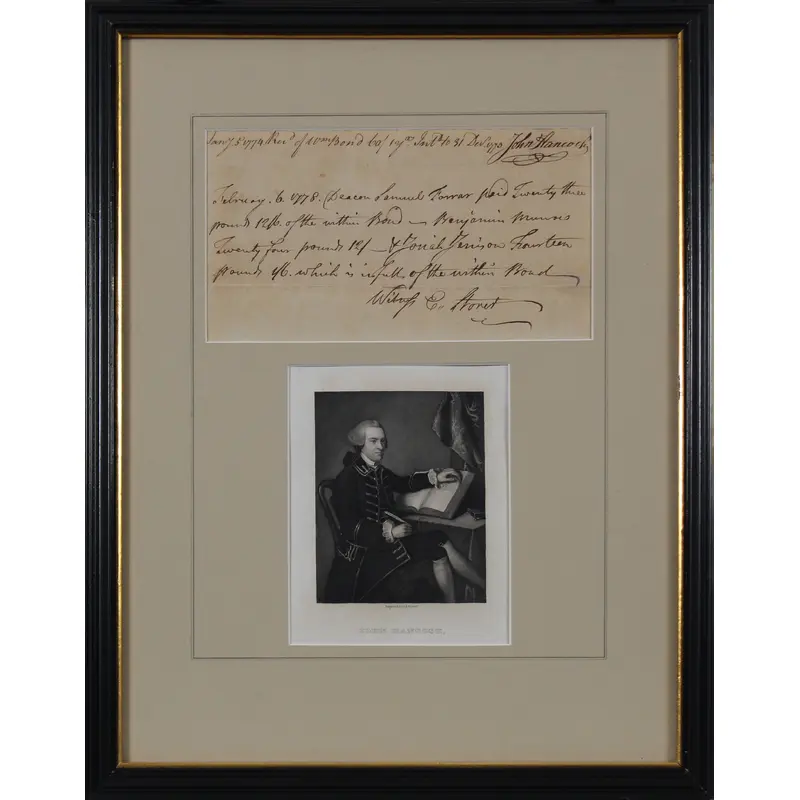 Jany 5 1774 Recd of Wm Bond 60/ Intt to 31 Decr 1773 John Hancock
February. 6. 1778. Deacon Samuel Farrar paid Twenty three
pounds 12/6. of the within Bond — Benjamin Munroe
Twenty four pounds 12/ — & Josiah Jenison Fourteen
pounds 4/6. which is in full of the within Bond
Witness E. Storer
JOHN HANCOCK.